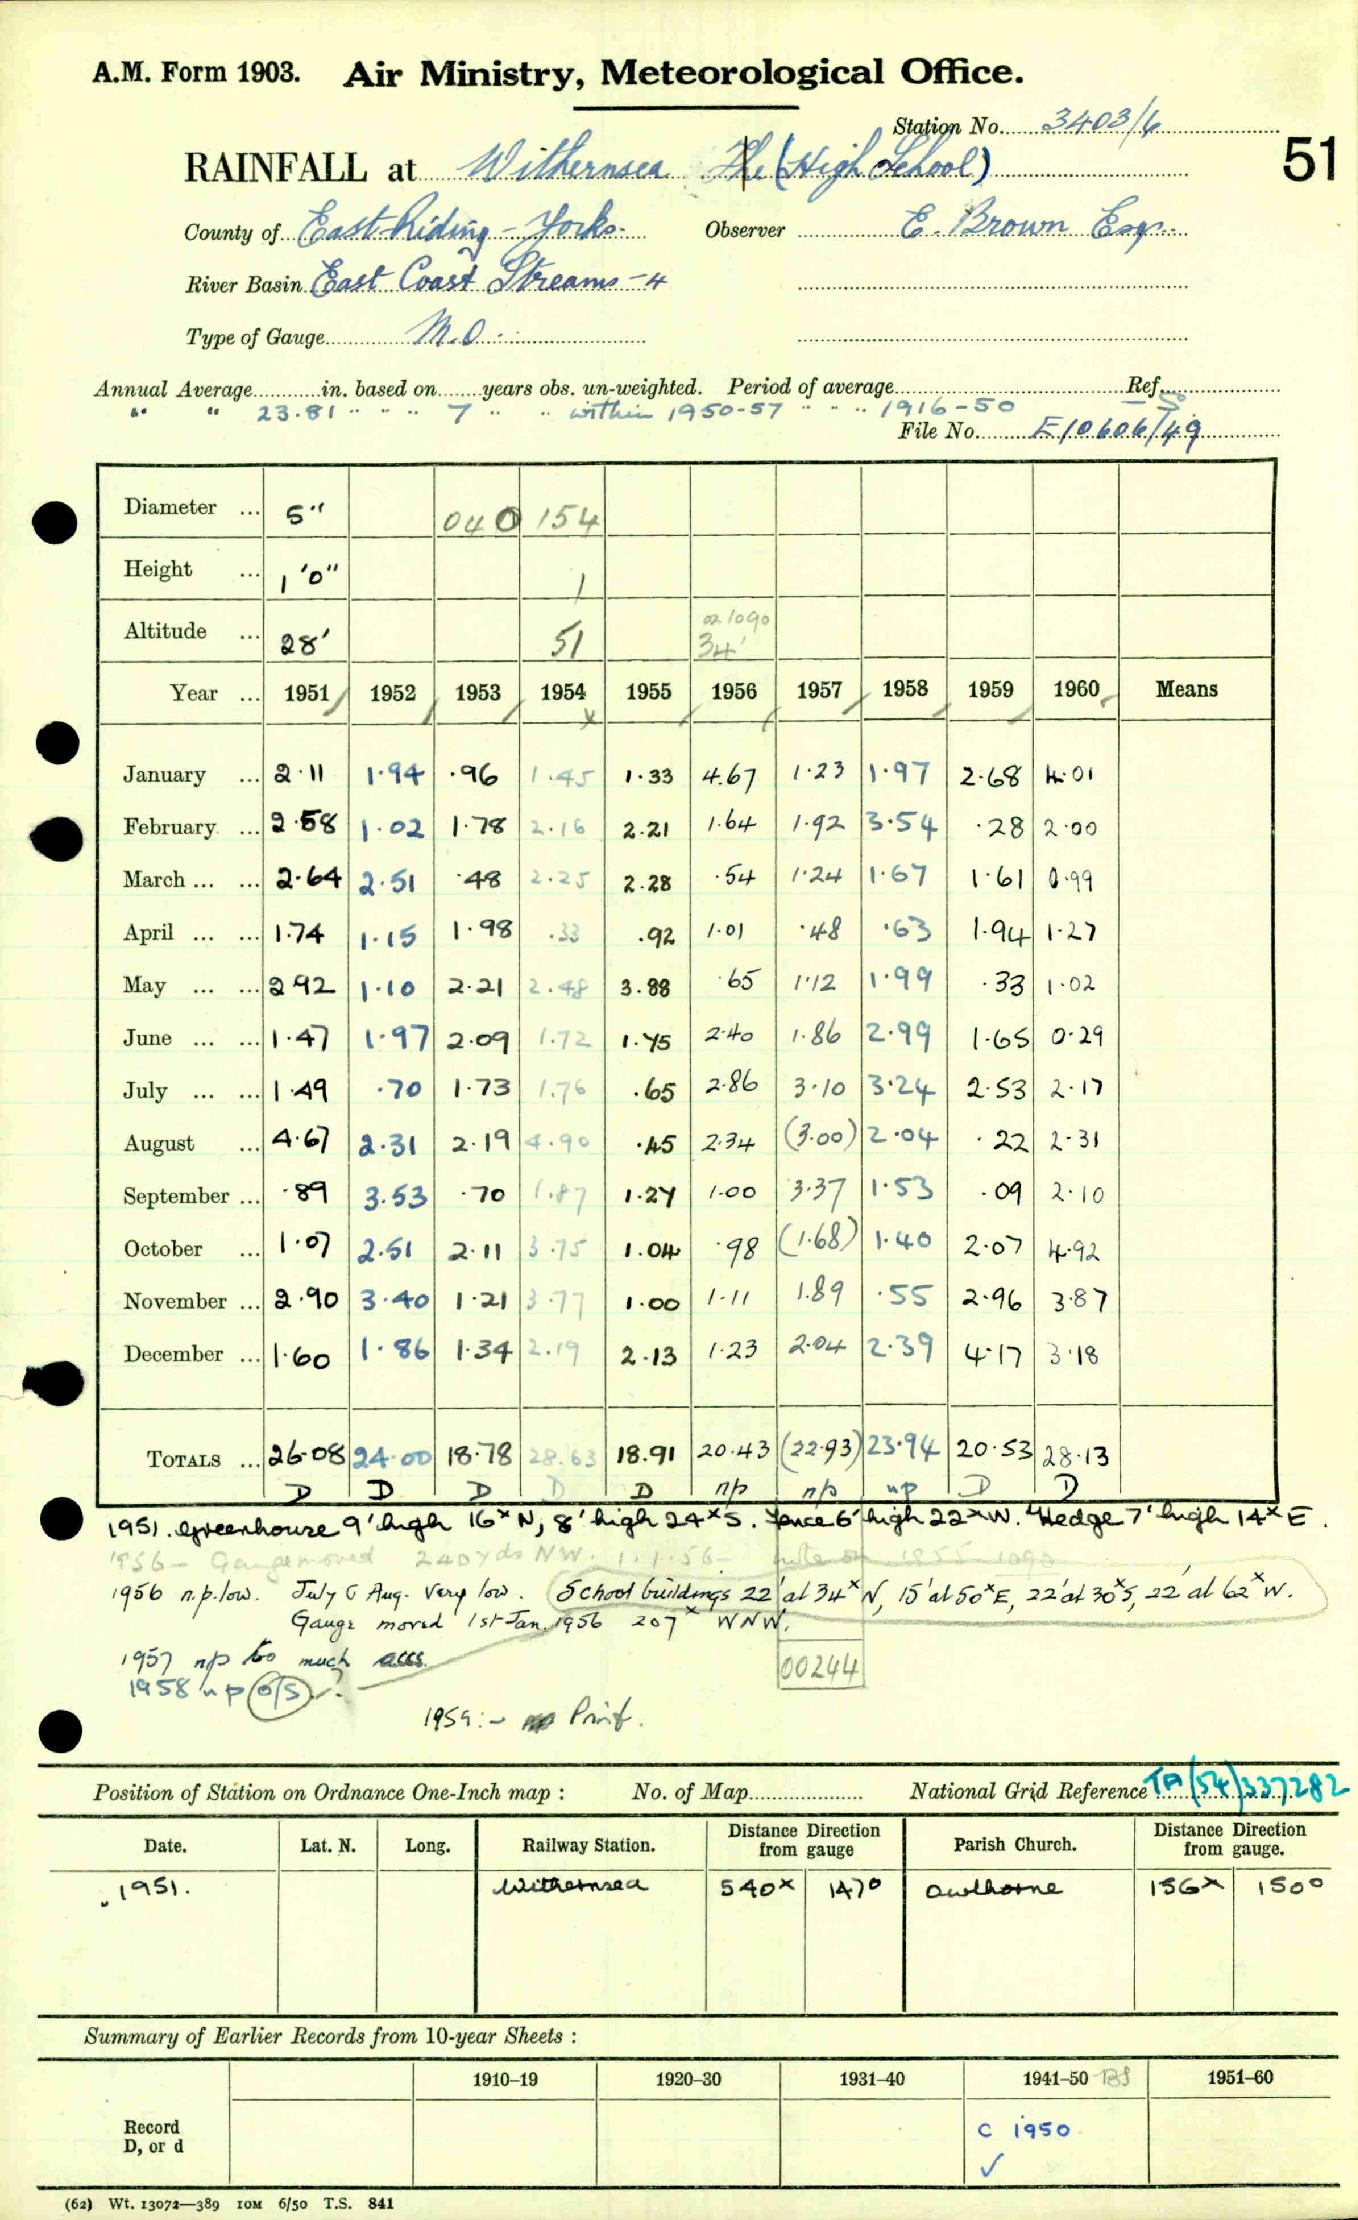 A.M. Form 1903. Air Ministry, Meteorological Office.
Station No. 3403/6
RAINFALL at Withernsea The (High School) 51
County of East Riding - Yorks. Observer E. Brown Esq.
River Basin East Coast Streams - 4
Type of Gauge M.O.
Annual Average in. based on years obs. un-weighted. Period of average Ref.
" " 23.81 " " " 7 " " within 1950-57 " " " 1916-50
File No. E10606/49
Diameter ... 5" 040 154
Height ... 1'0" 1
Altitude ... 28' 51 02/090 34'
Year ... 1951 1952 1953 1954 1955 1956 1957 1958 1959 1960 Means
January ... 2.11 1.94 .96 1.45 1.33 4.67 1.23 1.97 2.68 4.01
February ... 2.58 1.02 1.78 2.16 2.21 1.64 1.92 3.54 .28 2.00
March ... ... 2.64 2.51 .48 2.25 2.28 .54 1.24 1.67 1.61 0.99
April ... ... 1.74 1.15 1.98 .33 .92 1.01 .48 .63 1.94 1.27
May ... ... 2.92 1.10 2.21 2.48 3.88 .65 1.12 1.99 .33 1.02
June ... ... 1.47 1.97 2.09 1.72 1.75 2.40 1.86 2.99 1.65 0.29
July ... ... 1.49 .70 1.73 1.76 .65 2.86 3.10 3.24 2.53 2.17
August ... 4.67 2.31 2.19 4.90 .45 2.34 (3.00) 2.04 .22 2.31
September ... .89 3.53 .70 1.87 1.27 1.00 3.37 1.53 .09 2.10
October ... 1.07 2.51 2.11 3.75 1.04 .98 (1.68) 1.40 2.07 4.92
November ... 2.90 3.40 1.21 3.77 1.00 1.11 1.89 .55 2.96 3.87
December ... 1.60 1.86 1.34 2.19 2.13 1.23 2.04 2.39 4.17 3.18
TOTALS ... 26.08 24.00 18.78 28.63 18.91 20.43 (22.93) 23.94 20.53 28.13
D D D D D np np np D D
1951. Greenhouse 9' high 16x N, 8' high 24x S. Fence 6' high 22x W. Hedge 7' high 14x E.
1956 - Gauge moved 240yds NW. 1.1.56 - 1955
1956 n.p. low. July & Aug. very low. School buildings 22' at 34x N, 15' at 50x E, 22' at 30x S, 22' at 62x W.
Gauge moved 1st Jan. 1956 207x WNW.
1957 np too much accs.
00244
1958 np o/s ?
1959 :- np Print.
Position of Station on Ordnance One-Inch map : No. of Map National Grid Reference TA(54)337282
Date. Lat. N. Long. Railway Station. Distance from Direction gauge Parish Church. Distance from Direction gauge.
1951. Withernsea 540x 147° Owthorne 156x 150°
Summary of Earlier Records from 10-year Sheets :
1910-19 1920-30 1931-40 1941-50 1951-60
Record D, or d C 1950
✓
(62) Wt. 13072—389 10M 6/50 T.S. 841